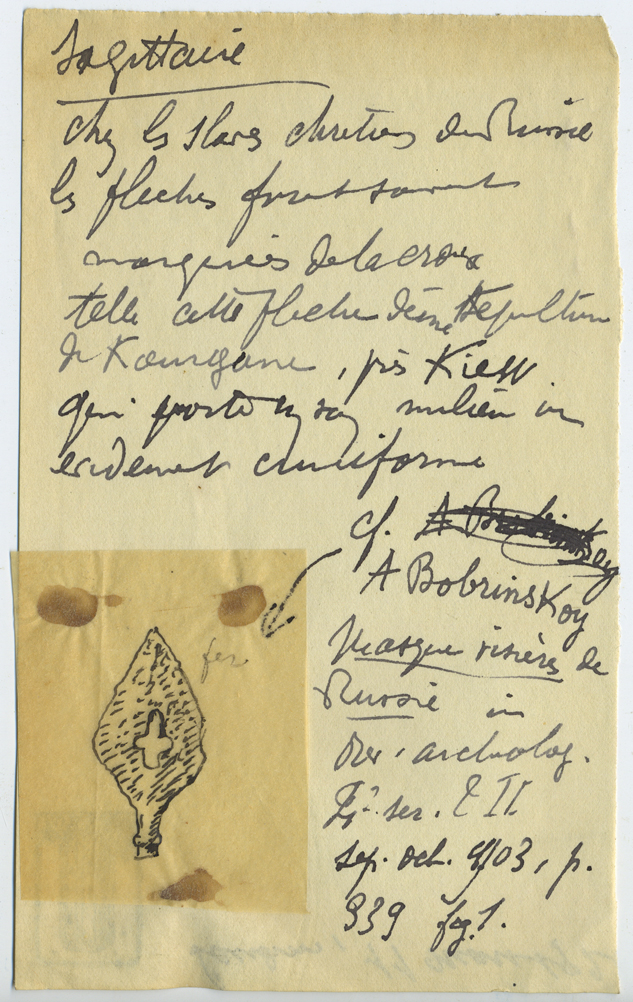 Sagittaire
chez les slaves chrétiens de Russie
les flèches sont souvent
marquées de la croix
telle cette flèche d'une sépulture
de Kourgane, près Kieff
qui porte en son milieu un
evidement cruciforme
cf. A Bobrinskoy
A Bobrinskoy
Masque visières de
Russie in
Rev. archéolog.
ser. t II
sep. oct. 1903, p.
339 fig. 1.
fer